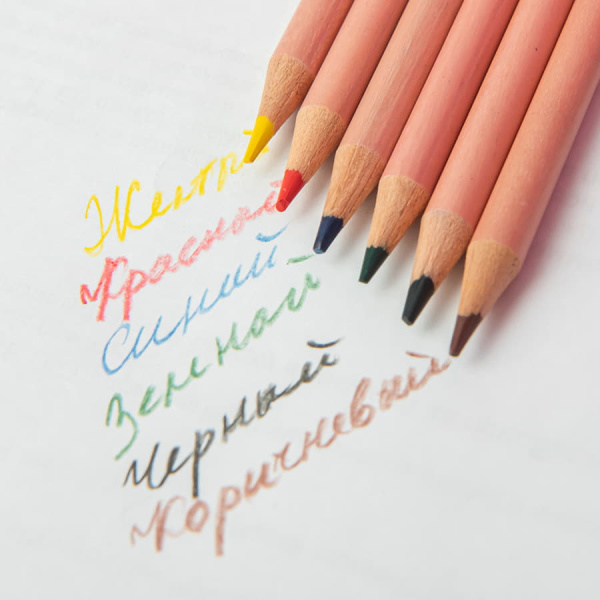 Желтый
Красный
Синий
Зеленой
Черный
Коричневый